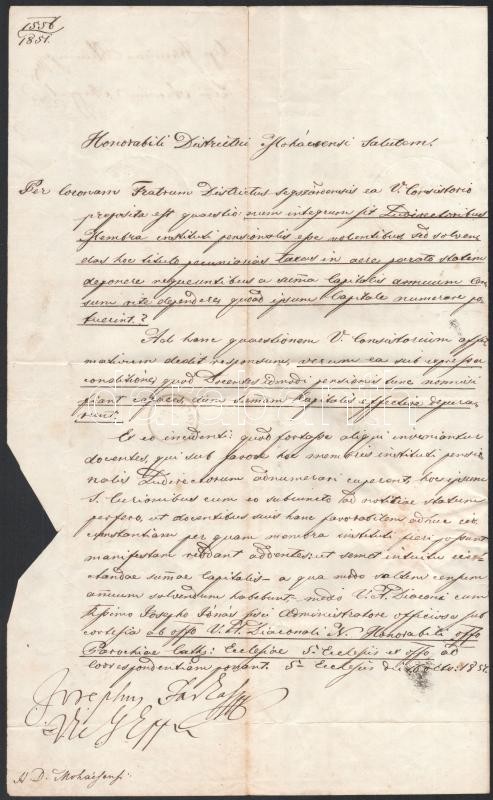 1556
1851.
Honorabili Districtui Mohácsensi Salutem!
Per Coronam Fratrum Districtus Segszárdensis ea V. Consistorio
proposita est quaestio: num integrum sit Ludirectoribus
Membra instituti pensionalis esse volentibus sed solven
das hoc titulo pecuniarias taxas in aere parato statim
deponere nequeuntibus a suma Capitalis annuum Cen
sum rite dependere, quoad ipsum Capitale numerare po
tuerint?
Ad hanc quaestionem V. Consistorium affir
mativum dedit responsum, verum ea sub expressa
conditione, quod Docentes ejmodi pensionis tunc nonnisi
fiant capaces, dum Sumam Capitalis effective depurá
runt.
Et eo incidenti: quod fortasse aliqui inveniantur
docentes, qui sub favore hoc membris instituti pensio
nalis Ludirectorum adnumerari cuperent, hoc ipsum
S. Curionibus cum eo subjuncto ad notitiae statum
perfero, ut docentibus suis hanc favorabilem adhuc cir
cumstantiam per quam membra instituti fieri possunt
manifestam reddant
Summae Capitalis a qua modo saltem censum
annuum solvendum habebunt medo V. A. Diaconi cum
Josepho Jónás Administratore officiosa sub
cortesia ab offo V. A. Diaconali N. Honorabili offo
Parochiae Cath: Ecclesiae Sz. Ecclesiis et offo ab
correspondentiam ponant. 1851.
Josephus Farkas
H. D. Mohácsensi